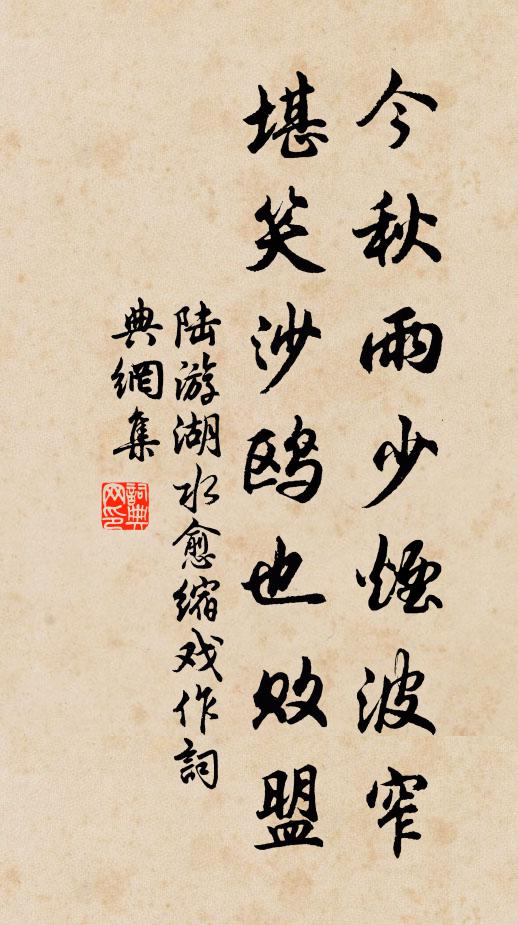 今秋雨少煙波窄
堪笑沙鸥也败盟
陆游湖水愈缩戏作詞
典網集
詞典网印